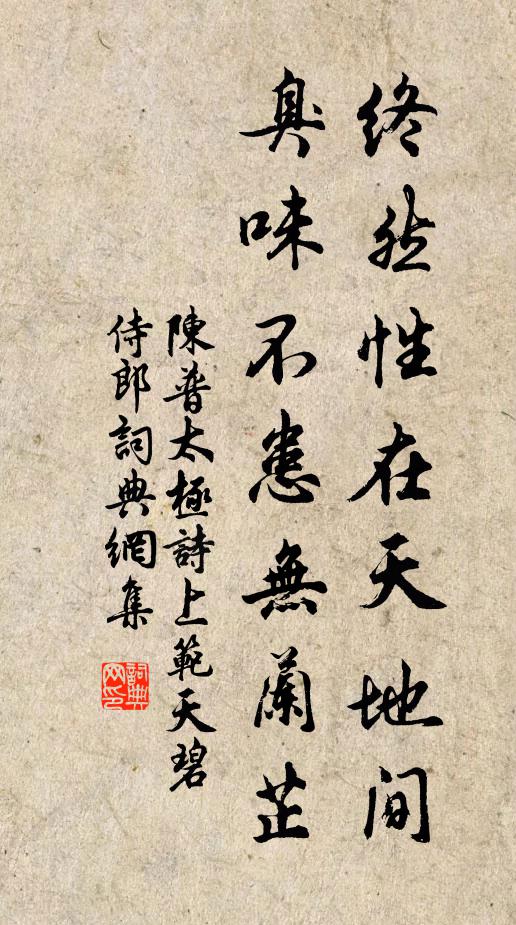 终然性在天地间
臭味不患無蘭芷
陳普太極詩上範天碧
侍郎詞典網集
詞典网印